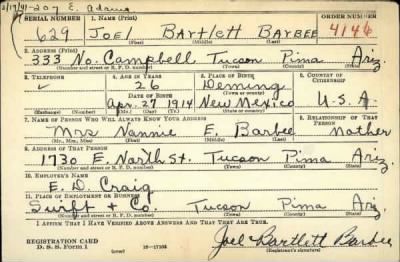 2/17/41-207 E. Adams
SERIAL NUMBER 1. NAME (Print) ORDER NUMBER
629 JOEL BARTLETT BARBEE 4146
(First) (Middle) (Last)
2. ADDRESS (Print)
333 No. Campbell Tucson Pima Ariz.
(Number and street or R. F. D. number) (Town) (County) (State)
3. TELEPHONE 4. AGE IN YEARS 5. PLACE OF BIRTH 6. COUNTRY OF CITIZENSHIP
26 Deming
DATE OF BIRTH (Town or county)
Apr. 27 1914 New Mexico U. S. A.
(Mo.) (Day) (Yr.) (State or country)
7. NAME OF PERSON WHO WILL ALWAYS KNOW YOUR ADDRESS 8. RELATIONSHIP OF THAT PERSON
Mrs Nannie E. Barbee Mother
(Mr., Mrs., Miss) (First) (Middle) (Last)
9. ADDRESS OF THAT PERSON
1730 E. North St. Tucson Pima Ariz.
(Number and street or R. F. D. number) (Town) (County) (State)
10. EMPLOYER'S NAME
E. D. Craig
11. PLACE OF EMPLOYMENT OR BUSINESS
Swift + Co. Tucson Pima Ariz.
(Number and street or R. F. D. number) (Town) (County) (State)
I AFFIRM THAT I HAVE VERIFIED ABOVE ANSWERS AND THAT THEY ARE TRUE.
REGISTRATION CARD
D. S. S. Form 1 (over) 16-17105 Joel Bartlett Barbee
(Registrant's signature)